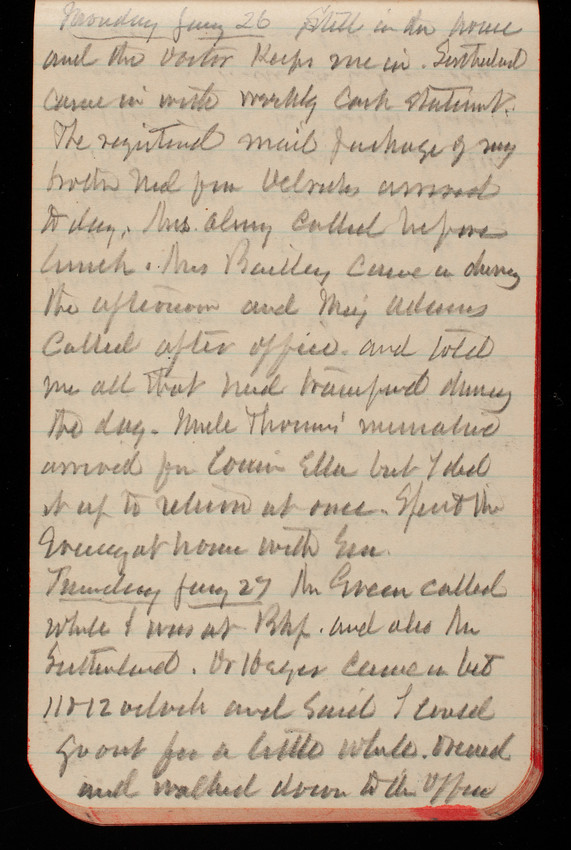 Monday Jany 26 Still in the house
and the Doctor Keeps me in. Sutherland
came in with weekly Cash statement.
The registered mail package of my
brother Ned from arrived
to day. Mrs. Almy called before
lunch. Mrs Bailey came in during
the afternoon and Maj Adams
Called after office. and told
me all that had transpired during
the day. Uncle Thomas' miniature
arrived for Cousin Ella but I did
it up to return at once. Spent the
Evening at home with
Tuesday Jany 27 Mr Green called
while I was at Bkf. and also Mr
Sutherland. Dr Hager came in bet
11 & 12 oclock and said I could
go out for a little while. Dressed
and walked down to the Office